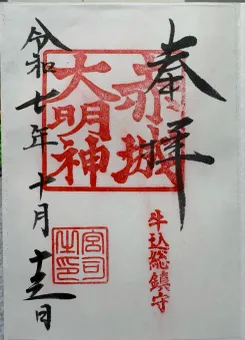 奉拝
赤城
大明神
牛込総鎮守
宮司之印
令和七年十月十三日